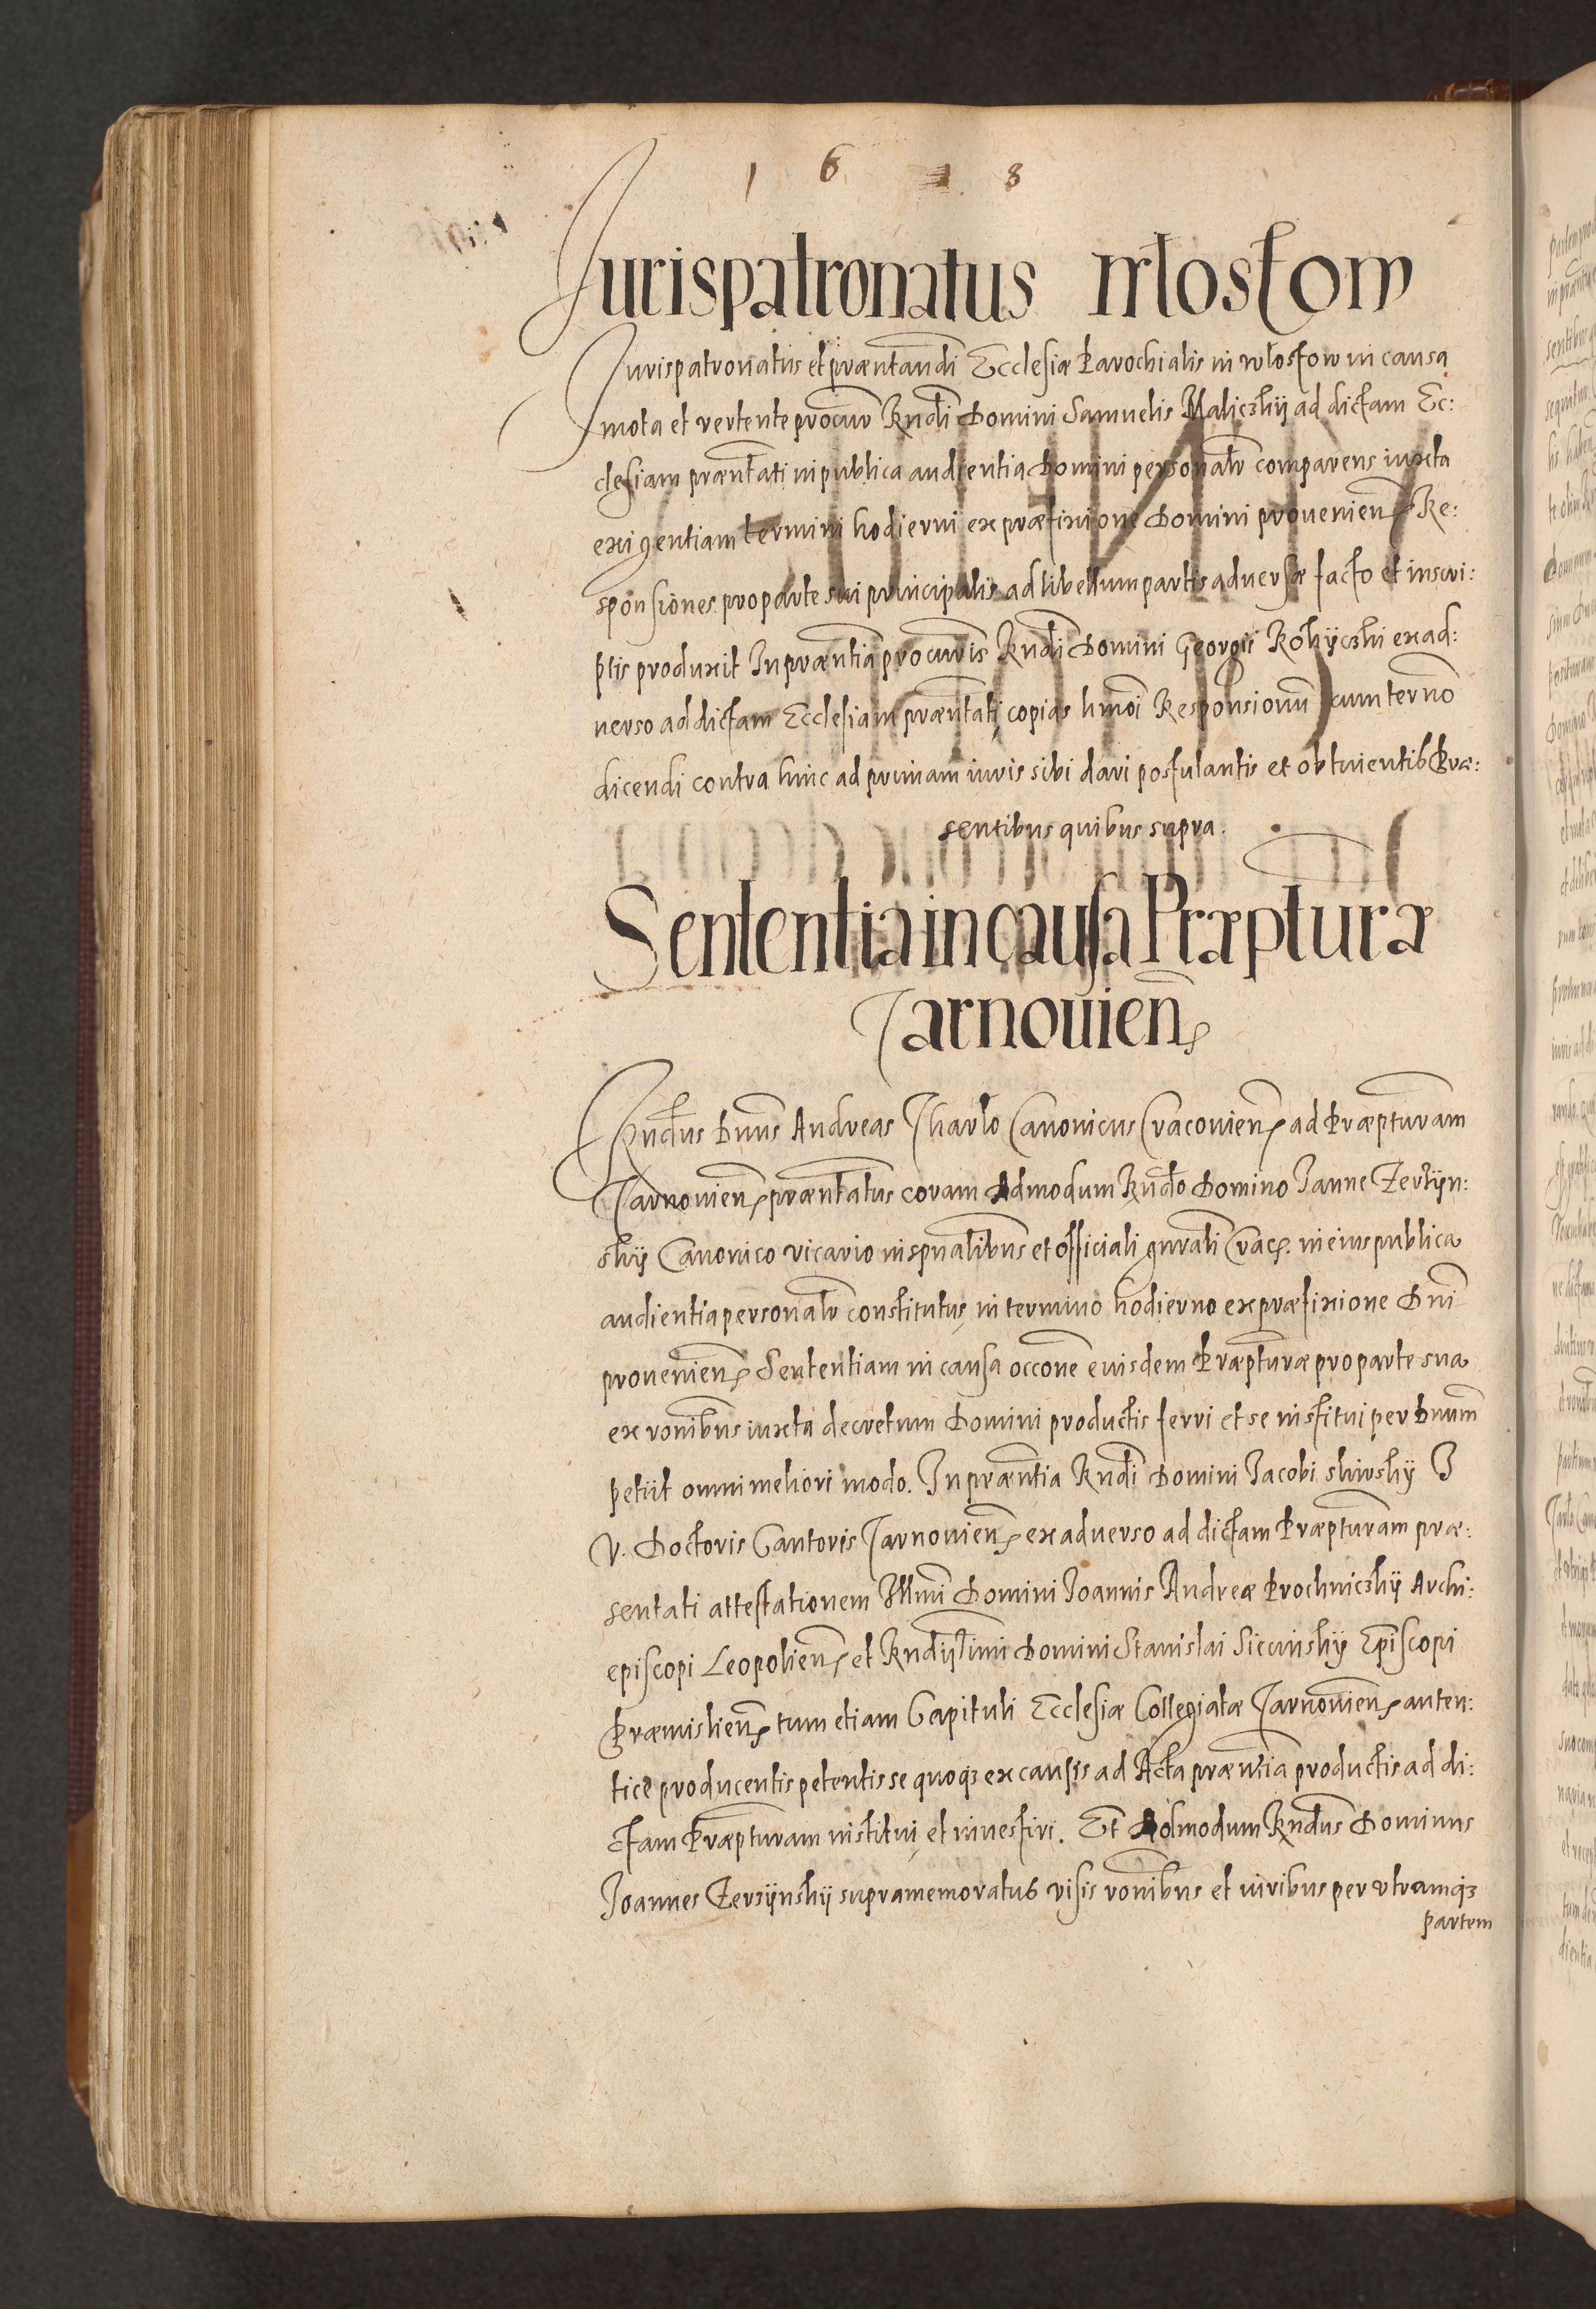 1 6 1 8
Jurispatronatus Włostow
Jurispatronatus et præntandi Ecclesiæ Parochialis in Włostow in causa
mota et vertente procur Rndi Domini Samuelis Maliczkij ad dictam Ec:
clesiam præntati in publica audientia Domini personalr comparens iuxta
exigentiam termini hodierni ex præfixione Domini prouenien Re:
sponsiones pro parte sui principalis ad libellum partis aduersæ facto et inscri:
ptis produxit In præntia procuris Rndi Domini Georgii Rokijczki ex ad:
uerso ad dictam Ecclesiam præntati, copias hmoi Responsionu cum termo
dicendi contra hinc ad primam iuris sibi dari postulantis et obtinentis Præ:
sentibus quibus supra.
Sententia in causa Præptura
Tarnouien
Rndus Dnus Andreas Tharlo Canonicus Cracouien ad Præpturam
Tarnouien præntatus coram Admodum Rndo Domino Ianne Zerzijn:
skij Canonico vicario in spualibus et officiali gnrali Crac. in eius publica
audientia personalr constitutus, in termino hodierno ex præfixione Dni
prouenien Sententiam in causa occone eiusdem Præpturæ pro parte sua
ex ronibus iuxta decretum Domini productis ferri et se institui per Dnum
petiit omni meliori modo. In præntia Rndi Domini Iacobi skivskij I
V. Doctoris Cantoris Tarnouien ex aduerso ad dictam Præpturam præ:
sentati attestationem Illmi Domini Ioannis Andreæ Prochniczkij Archi:
episcopi Leopolien et Rndissimi Domini Stanislai Siecinskij Episcopi
Præmislien tum etiam Capituli Ecclesiæ Collegiatæ Tarnouien auten:
tice producentis petentis se quoq3 ex causis ad Acta præntia productis ad di:
ctam Præpturam institui, et inuestiri. Et Admodum Rndus Dominus
Joannes Zerzijnskij supramemoratus visis ronibus et iuribus per vtramq3
partem